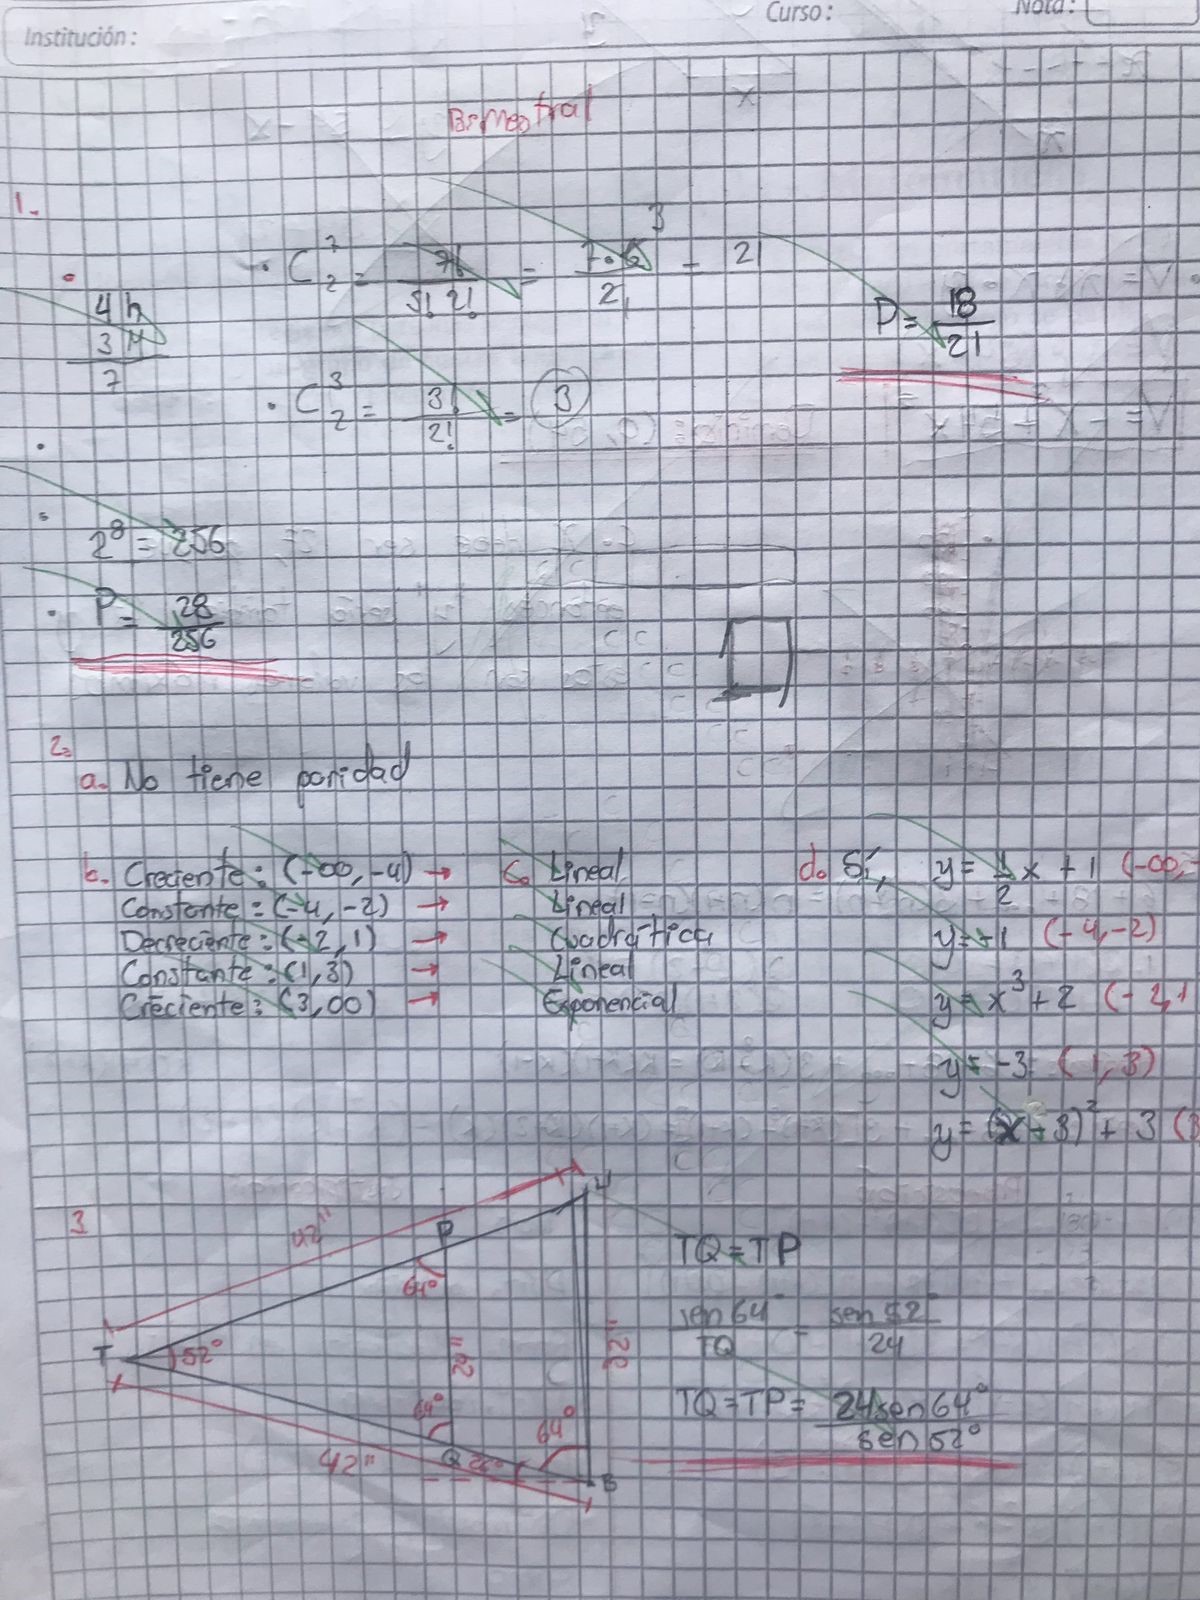 Institución:
Curso:
Nota:
Bimestral
1.
4 h
3 M
7
C⁷₂ = 7! / 5! 2! = 7·6 / 2 = 21
3
C³₂ = 3! / 2! = 3
P = 18 / 21
2⁸ = 256
P = 28 / 256
2.
a. No tiene paridad
b. Creciente: (-∞, -4) →
Constante: (-4, -2) →
Decreciente: (-2, 1) →
Constante: (1, 3) →
Creciente: (3, ∞) →
c. Lineal
Lineal
Cuadrática
Lineal
Exponencial
d. Sí, y = 1/2 x + 1 (-∞, -
y = -1 (-4, -2)
y = x³ + 2 (-2, 1
y = -3 (1, 3)
y = (x - 3)² + 3 (3
3
42"
P
64°
T
52°
64°
64°
42"
Q
B
TQ = TP
sen 64° / TQ = sen 52° / 24
TQ = TP = 24 sen 64° / sen 52°